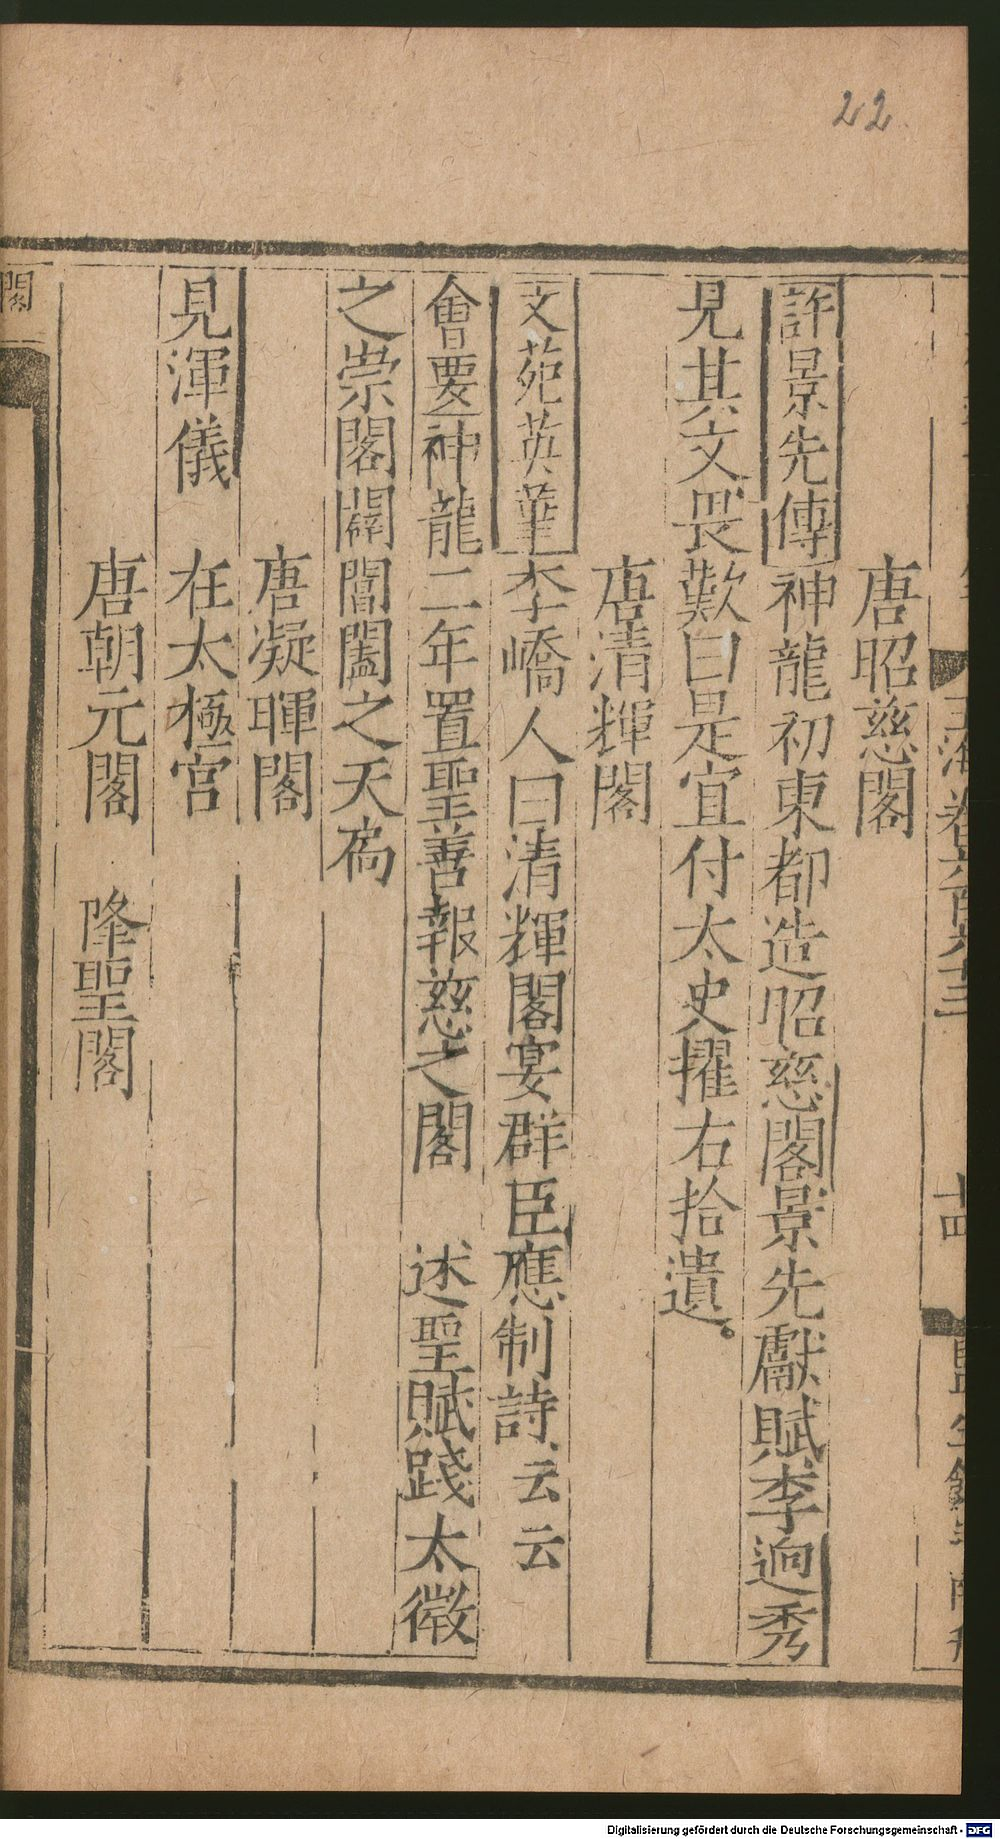 22
玉海卷一百六十三
十四
唐昭慈閣
許景先傳神龍初東都造昭慈閣景先獻賦李迥秀
見其文畏歎曰是宜付太史擢右拾遺。
唐清輝閣
文苑英華李嶠人日清輝閣宴群臣應制詩云云
會要神龍二年置聖善報慈之閣 述聖賦踐太微
之崇閣闢閶闔之天扃
唐凝暉閣
見渾儀 在太極宮
唐朝元閣 降聖閣
閣
Digitalisierung gefördert durch die Deutsche Forschungsgemeinschaft - DFG